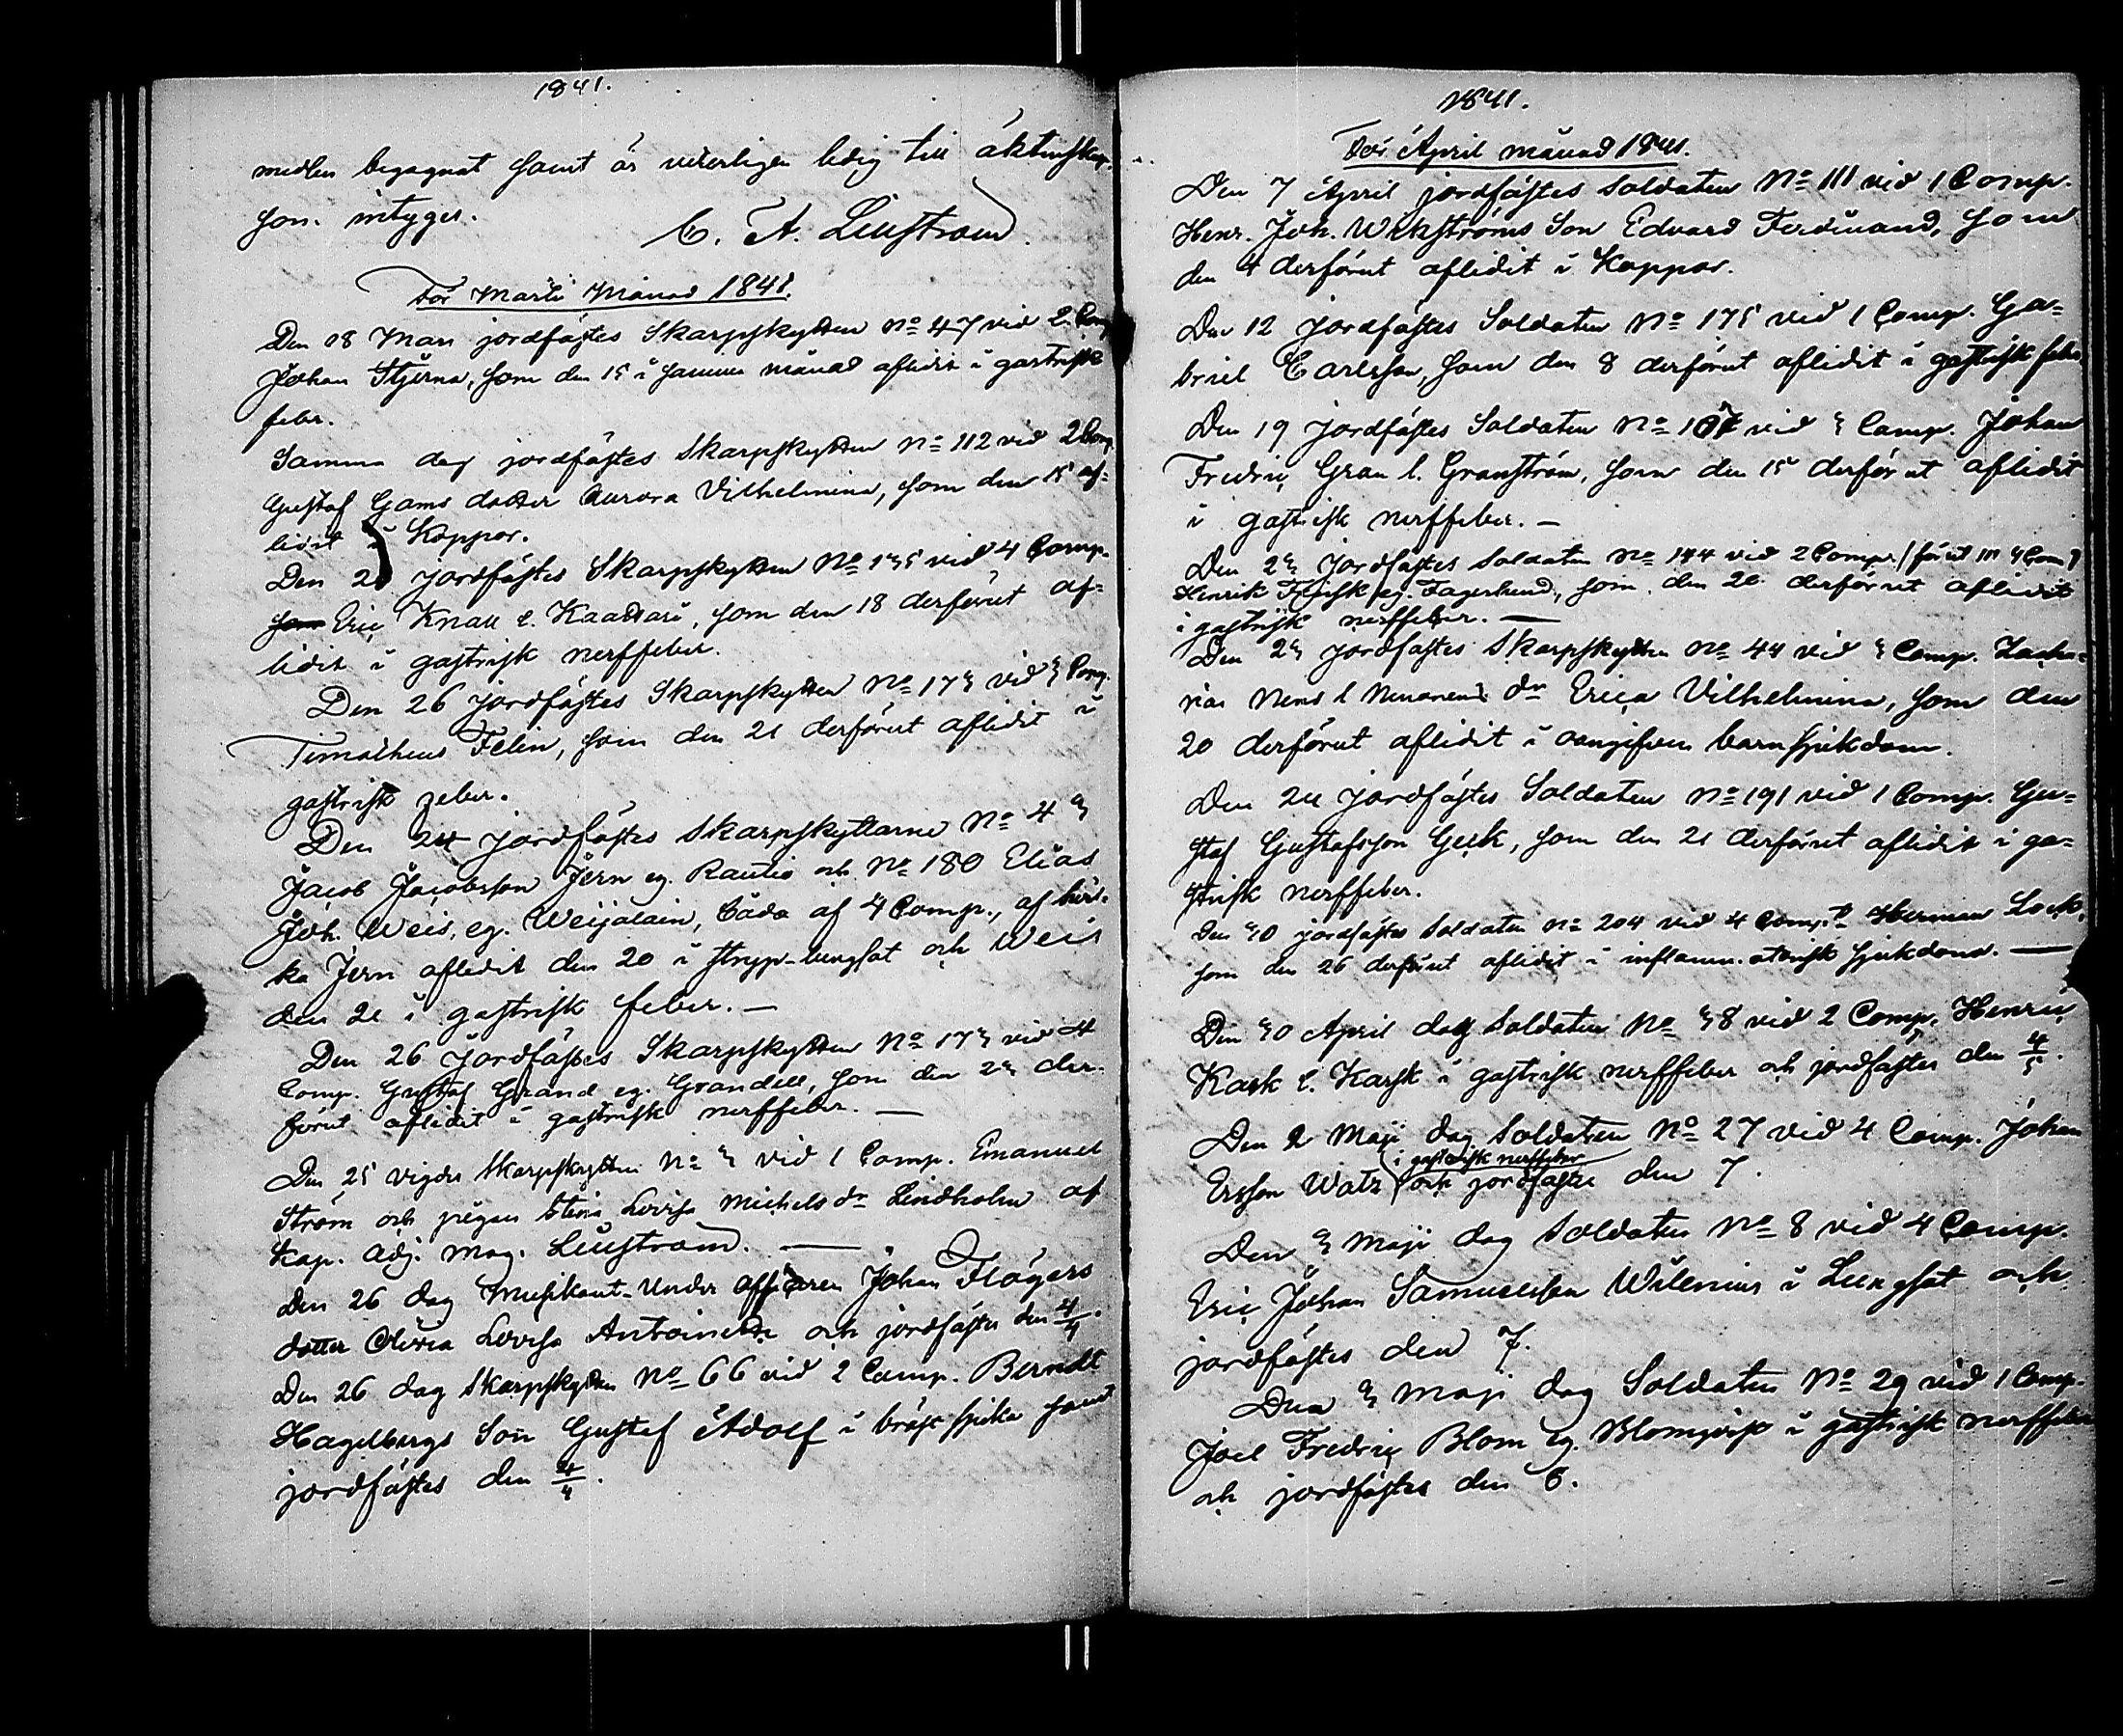 1841.
medlen begagnat samt är veterligen ledig till äktenskap,
som intyges.
C. A. Leistroem.
För Martii Månad 1841.
Den 18 Mars jordfästes Skarpskytten No 47 vid 2 Comp
Johan Stjerna, som den 15 i samma månad aflidit i gastrisk
feber.
Samma dag jordfästes Skarpskytten No 112 vid 2 Comp
Gustaf Gams dotter Aurora Vilhelmina, som den 15 af-
lidit i Koppor.
Den jordfästes Skarpskytten No 135 vid 4 Comp.
Eric Knall l. Kaattari, som den 18 derförut af-
lidit i gastrisk nerffeber.
Den 26 jordfästes Skarpskytten No 173 vid 3 Comp.
Timotheus Felin, som den 21 derförut aflidit i
gastrisk feber.
Den 24 jordfästes Skarpskyttarne No 43
Jacob Jacobsson Jern eg. Rautio och No 180 Elias
Joh. Weis, eg. Weijalain, båda af 4 Comp., af hvil-
ka Jern aflidit den 20 i stryp-lungsot och Weis
den 21 i gastrisk feber. —
Den 26 jordfästes Skarpskytten No 173 vid 4
Comp. Gustaf Grand eg. Grandell, som den 23 der-
förut aflidit i gastrisk nerffeber. —
Den 25 vigdes Skarpskytten No 3 vid 1 Comp. Emanuel
Ström och pigan Stina Lovisa Michelsdr Lindholm af
Kap. Adj. Mag. Leistroem. —
Den 26 dog Musikant-Under officeren Johan Flögers
dotter Olivia Lovisa Antoinette och jordfästes den 4/4.
Den 26 dog Skarpskytten No 66 vid 2 Comp. Berndt
Hagelbergs Son Gustaf Adolf i bröstsjuka samt
jordfästes den 4/4.
1841.
För April månad 1841.
Den 7 April jordfästes Soldaten No 111 vid 1 Comp.
Henr. Joh. Wikströms Son Edvard Ferdinand, som
den 4 derförut aflidit i Koppor.
Den 12 jordfästes Soldaten No 175 vid 1 Comp. Ga-
briel Carlsson, som den 8 derförut aflidit i gastisk feber.
Den 19 jordfästes Soldaten No 107 vid 3 Comp. Johan
Fredric Gran l. Granström, som den 15 derförut aflidit
i gastrisk nerffeber. —
Den 23 jordfästes Soldaten No 144 vid 2 Comp. /förut 111 4 Com/
Henrik Frisk eg. Fagerlund, som den 20 derförut aflidit
i gastrisk nerffeber. —
Den 23 jordfästes Skarpskytten No 44 vid 3 Comp. Zacha-
rias Nens l Nenonens dr Erica Vilhelmina, som den
20 derförut aflidit i oangifven barnsjukdom.
Den 24 jordfästes Soldaten No 191 vid 1 Comp. Gu-
staf Gustafsson Geek, som den 21 derförut aflidit i ga-
strisk nerffeber.
Den 30 jordfästes Soldaten No 204 vid 4 Comp. Herman Lock,
som den 26 derförut aflidit i inflammatorisk sjukdom. —
Den 30 April dog Soldaten No 38 vid 2 Comp. Henric
Kask l. Karsk i gastrisk nerffeber och jordfästes den 4/5.
Den 2 Maji dog Soldaten No 27 vid 4 Comp. Johan
i gastrisk nerffeber
Ersson Watz och jordfästes den 7.
Den 3 Maji dog Soldaten No 8 vid 4 Comp.
Eric Johan Samuelsson Wilenius i Lungsot och
jordfästes den 7.
Den 3 Maji dog Soldaten No 29 vid 1 Comp.
Joel Fredric Blom eg. Blomqvist i gastrisk nerffeber
och jordfästes den 6.